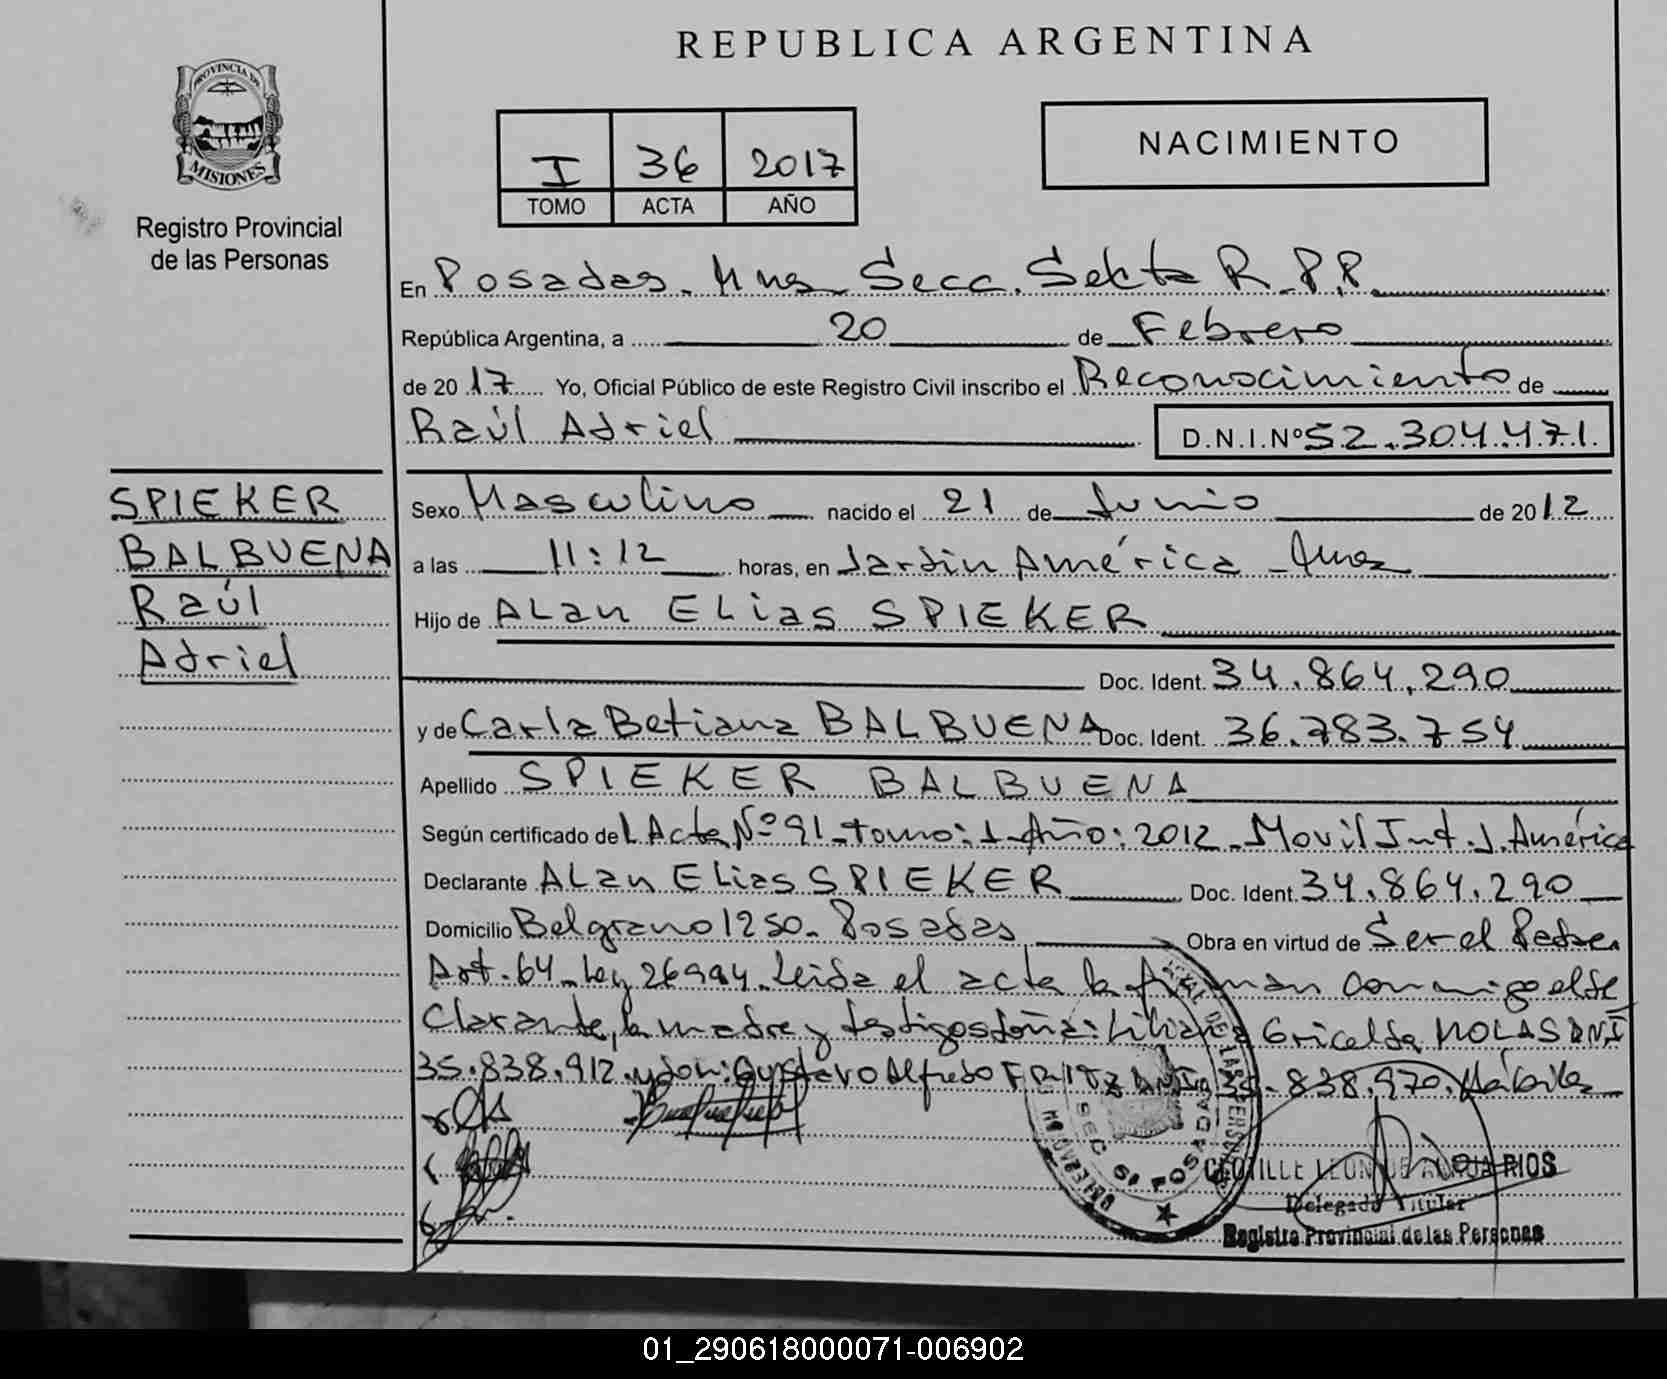 REPUBLICA ARGENTINA
PROVINCIA DE
MISIONES
Registro Provincial
de las Personas
I 36 2017
TOMO ACTA AÑO
NACIMIENTO
En Posadas. Mnes. Secc. Sexta R.P.P.
República Argentina, a 20 de Febrero
de 20 17 Yo, Oficial Público de este Registro Civil inscribo el Reconocimiento de
Raúl Adriel D.N.I.Nº 52.304.471.
SPIEKER
BALBUENA
Raúl
Adriel
Sexo Masculino nacido el 21 de Junio de 20 12
a las 11:12 horas, en Jardín América Mnes
Hijo de Alan Elias SPIEKER
Doc. Ident. 34.864.290
y de Carla Betiana BALBUENA Doc. Ident. 36.783.754
Apellido SPIEKER BALBUENA
Según certificado de l Acta Nº 91 - tomo: 1 - Año: 2012 - Movil Int. J. América
Declarante Alan Elias SPIEKER Doc. Ident. 34.864.290
Domicilio Belgrano 1250. Posadas Obra en virtud de Ser el Padre.
Art. 64 - Ley 26994. Leida el acta la firman conmigo el de
clarante, la madre y testigos doña: Liliana Gricelda MOLAS DNI
35.838.912. y don: Gustavo Alfredo FRITZ DNI .838.970. Hábiles
DE LAS PERSONAS
SEC 6º POSADAS
RIOS
Delegado Titular
Registro Provincial de las Personas
01_290618000071-006902